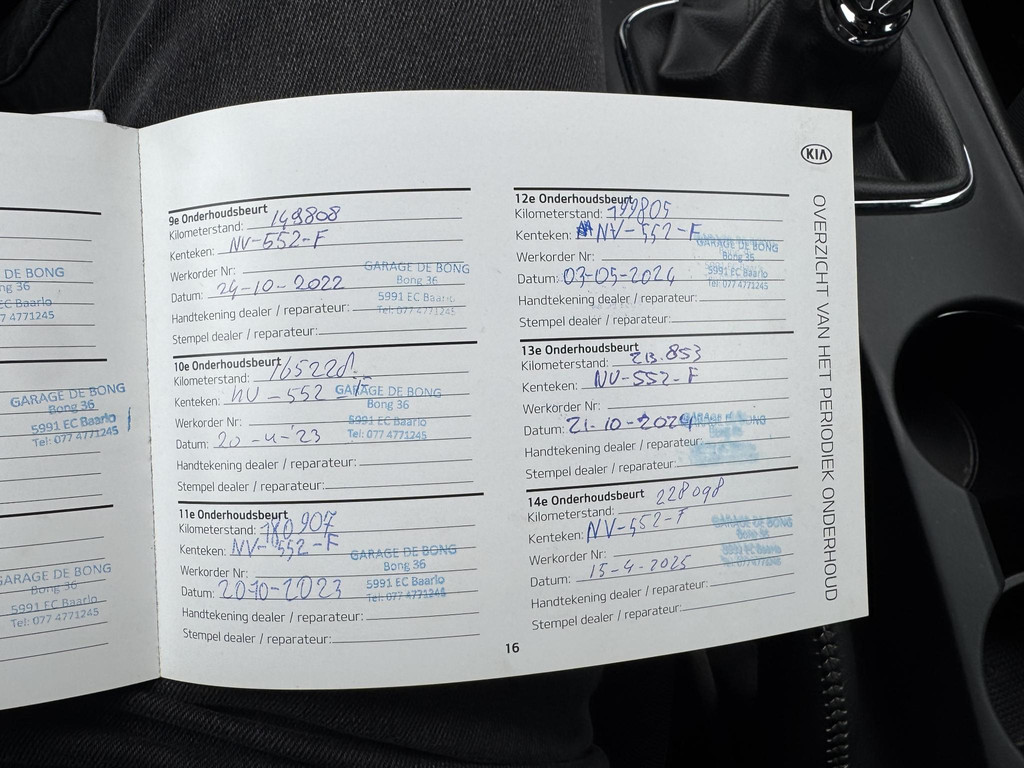 DE BONG
ng 36
EC Baarlo
7 4771245
GARAGE DE BONG
Bong 36
5991 EC Baarlo
Tel: 077 4771245
GARAGE DE BONG
Bong 36
5991 EC Baarlo
Tel: 077 4771245
9e Onderhoudsbeurt
Kilometerstand: 149808
Kenteken: NV-552-F
Werkorder Nr:
GARAGE DE BONG
Bong 36
Datum: 24-10-2022
5991 EC Baarlo
Handtekening dealer / reparateur:
Tel: 077 4771245
Stempel dealer / reparateur:
10e Onderhoudsbeurt
Kilometerstand:
Kenteken: NV-552-F
GARAGE DE BONG
Bong 36
Werkorder Nr:
5991 EC Baarlo
Datum: 20-4-'23
Tel: 077 4771245
Handtekening dealer / reparateur:
Stempel dealer / reparateur:
11e Onderhoudsbeurt
Kilometerstand: 180907
Kenteken: NV-552-F
GARAGE DE BONG
Bong 36
Werkorder Nr:
5991 EC Baarlo
Datum: 20-10-2023
Tel: 077 4771245
Handtekening dealer / reparateur:
Stempel dealer / reparateur:
12e Onderhoudsbeurt
Kilometerstand: 199805
Kenteken: NV-552-F
GARAGE DE BONG
Bong 36
Werkorder Nr:
5991 EC Baarlo
Datum: 03-05-2024
Tel: 077 4771245
Handtekening dealer / reparateur:
Stempel dealer / reparateur:
13e Onderhoudsbeurt
Kilometerstand: 213.853
Kenteken: NV-552-F
Werkorder Nr:
Datum: 21-10-2024
Handtekening dealer / reparateur:
Stempel dealer / reparateur:
14e Onderhoudsbeurt
Kilometerstand: 228098
Kenteken: NV-552-F
GARAGE DE BONG
Bong 36
Werkorder Nr:
5991 EC Baarlo
Datum: 15-4-2025
Tel: 077 4771245
Handtekening dealer / reparateur:
Stempel dealer / reparateur:
16
KIA
OVERZICHT VAN HET PERIODIEK ONDERHOUD